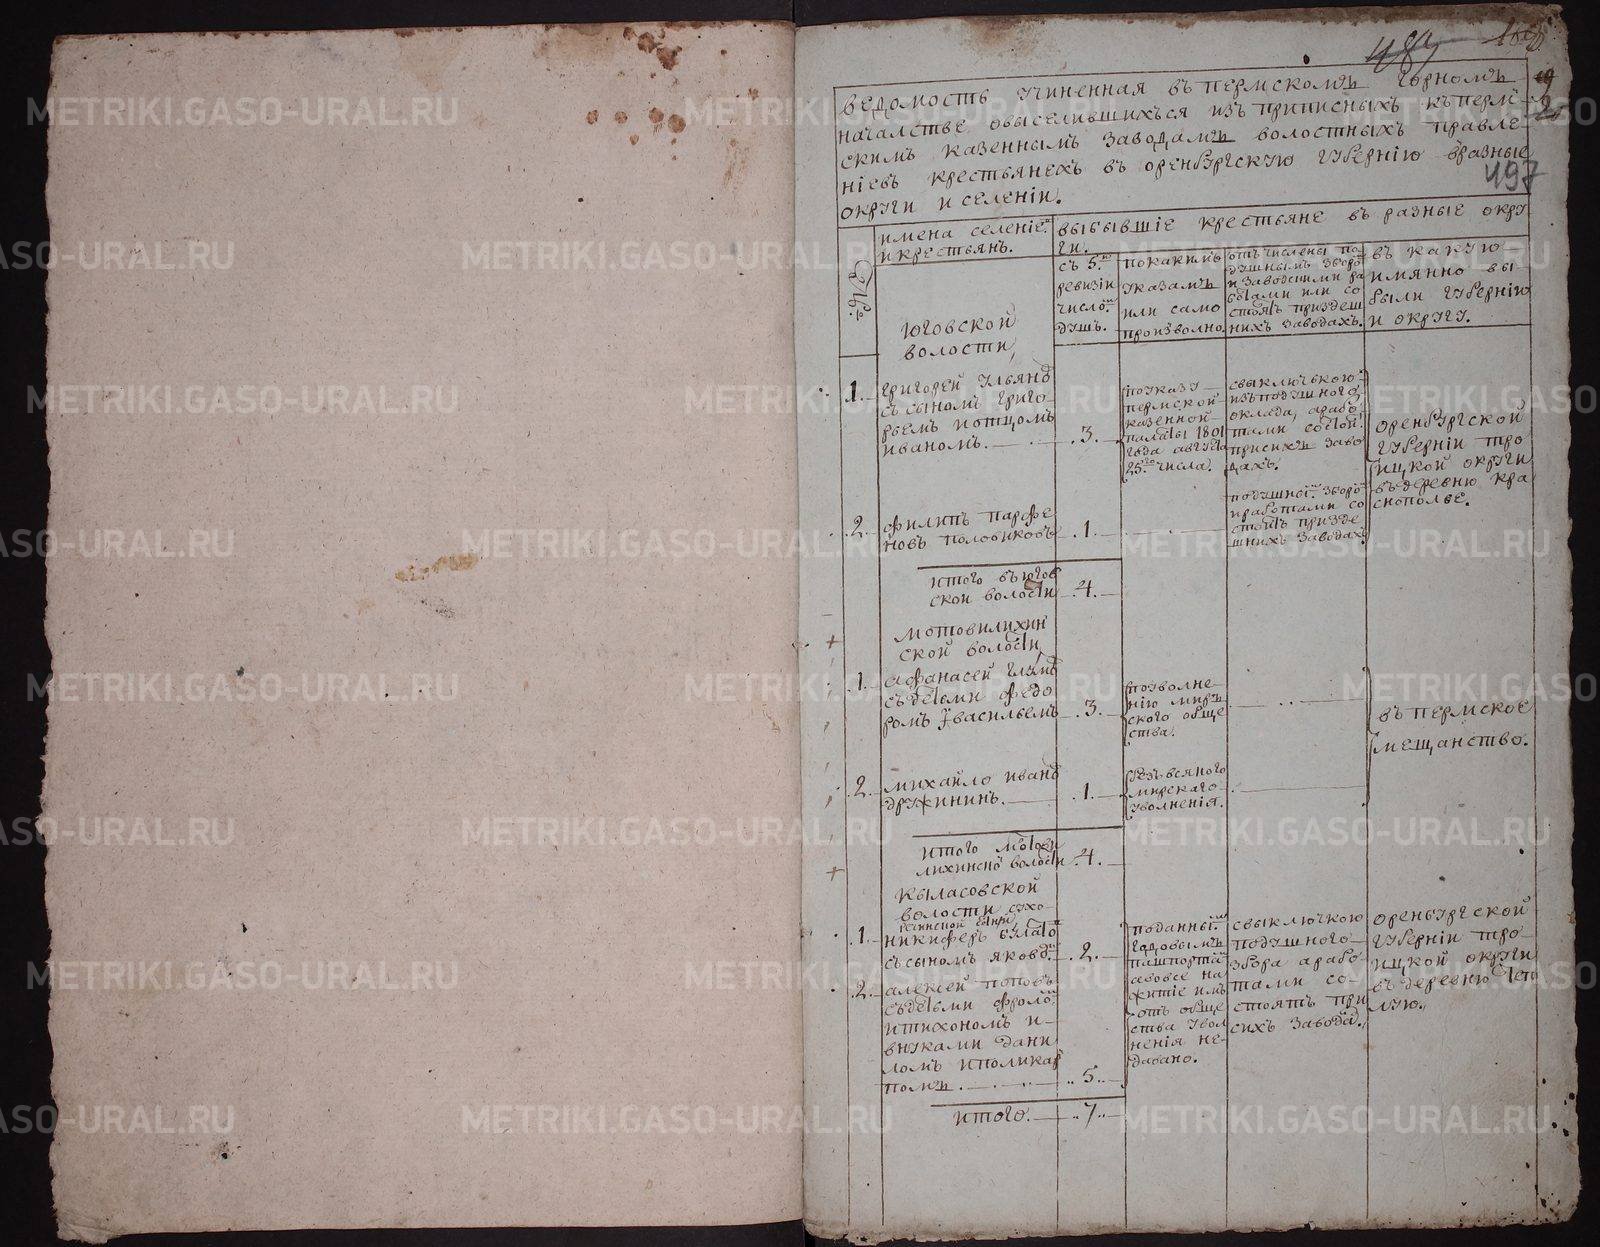 ВЕДОМОСТЬ УЧИНЕННАЯ ВЪ ПЕРМСКОМЪ ГОРНОМЪ
НАЧАЛСТВЕ ОВЫСЕЛИВШИХЪСЯ ИЗЪ ПРИПИСНЫХЪ КЪ ПЕРМ
СКИМЪ КАЗЕННЫМЪ ЗАВОДАМЪ ВОЛОСТНЫХЪ ПРАВЛЕ
НІЕВЪ КРЕСТЬЯНЕХЪ ВЪ ОРЕНБУРГСКУЮ ГУБЕРНІЮ ВРАЗНЫЕ
ОКРУГИ И СЕЛЕНІИ.
497
имена селеніе
и крестьянъ.
выбывшіе крестьяне въ разные окру
ги.
съ 5.
ревизіи
число
душъ.
по какимъ
указамъ
или само
произволно
отъ числены по
душнымъ зборо
и заводскими ра
ботами или со
стоятъ приздеш
нихъ заводахъ.
въ какую
имянно вы
были губернію
и округу.
юговской
волости
1. григорей ульяно
съ сыномъ григо
рьемъ и отцомъ
иваномъ. 3.
поуказу
пермской
казенной
палаты 1801
года августа
25 числа.
свыключкою
изъ подушного
оклада, арабо
тами состой
присихъ заво
дахъ.
оренбургской
губерніи тро
ицкой округи
въ деревню кра
снополье.
2. филипъ парфе
новъ половиковъ 1.
подушны зборо
и работами со
стоитъ призде
шнихъ заводахъ
итого въ югов
ской волости 4.
мотовилихин
ской волости
1. афанасей
съ детьми федо
ромъ васильемъ 3.
позволне
нію миръ
ского обще
ства.
въ пермское
мещанство.
2. михайло ивано
дружининъ. 1.
безъ всяного
мирскаго
уволненія.
итого мотови
лихинско волости 4.
Кыласовской
волости
1. никиферъ булато
съ сыномъ яково 2.
2. алексей поповъ
съ детьми фроло
итихономъ и
внуками дани
ломъ и поликар
помъ. 5.
поданны
годовымъ
пашпорти
авовсе на
житіе имъ
отъ обще
ства увол
ненія не
давано.
свыключкою
подушного
збора арабо
тами со
стоятъ при
сихъ завода.
оренбургской
губерніи тро
ицкой округи
въ деревню
итого. 7.
METRIKI.GASO-URAL.RU